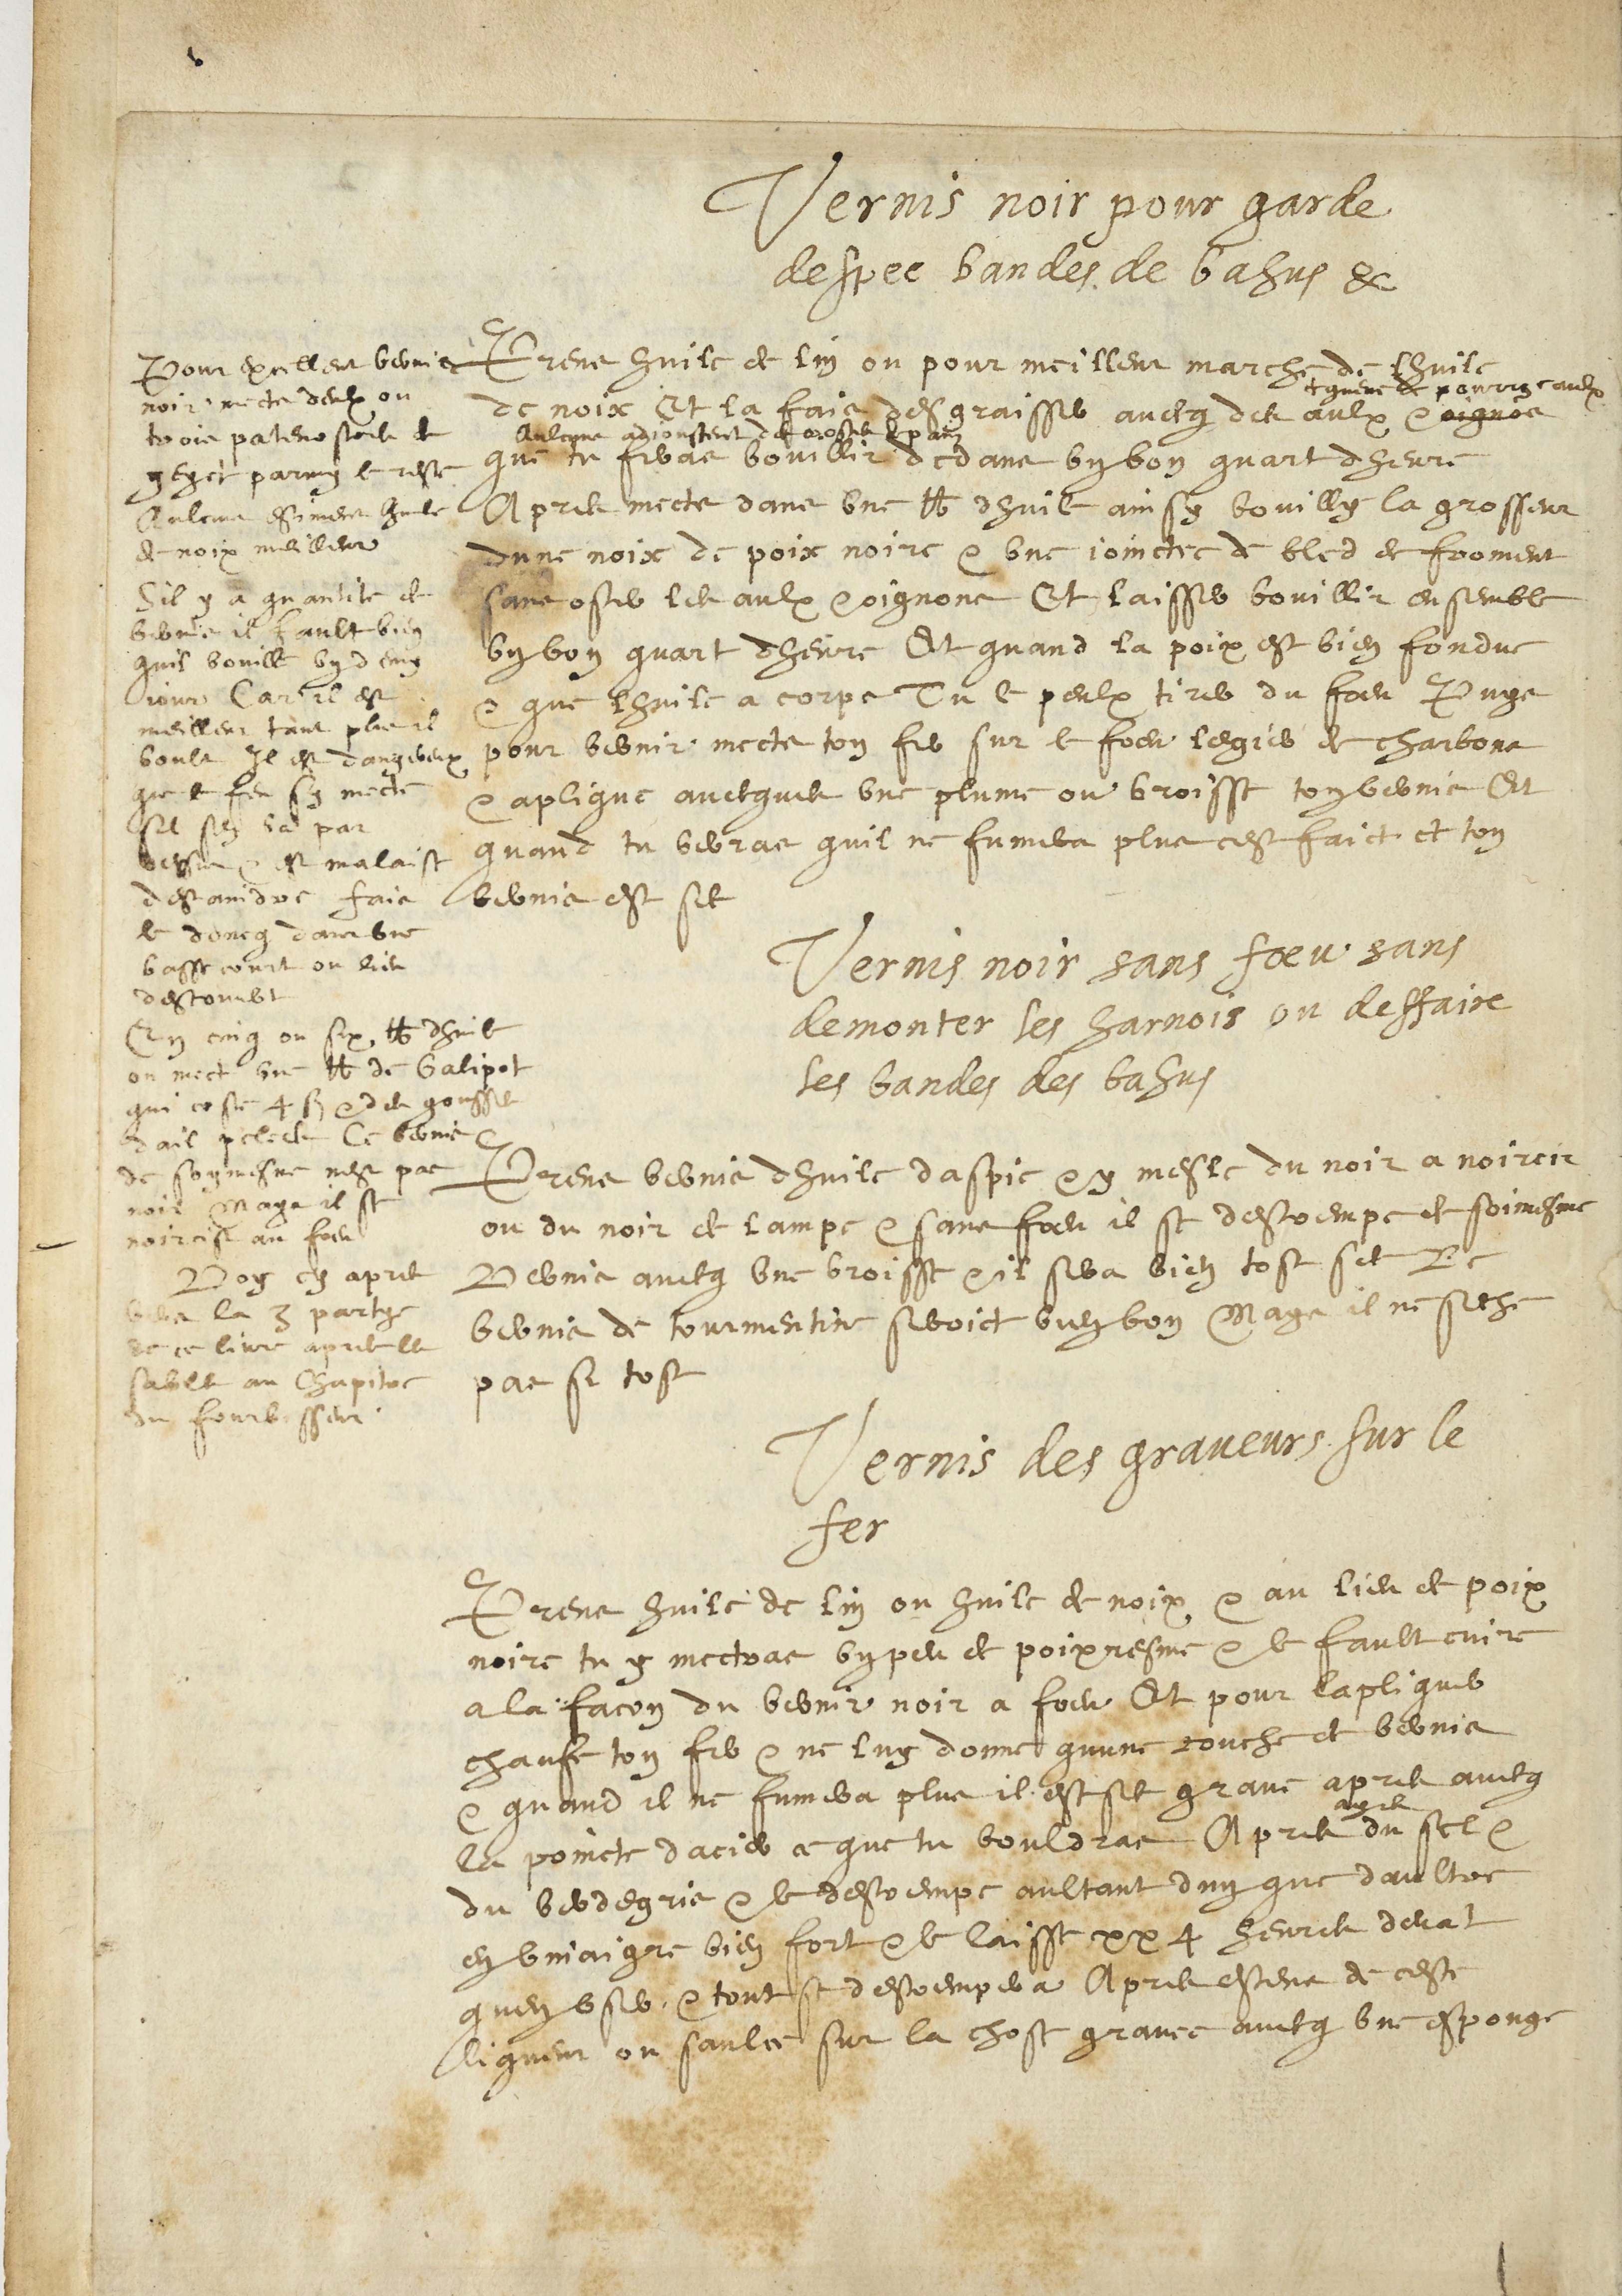 Vernis noir pour garde
despee bandes de bahus &c
Prens huile de lin ou pour meilleur marche de lhuile
de noix Et la fais desgraisser avecq des aulx & oignons
& queue de pourreaulx
Aulcuns adjoustent des crostes de pain
que tu feras bouillir dedans un bon quart dheure
Apres mects dans une lb dhuile ainsy bouilly la grosseur
dune noix de poix noire & une joinctee de bled de froment
sans oster les aulx & oignons Et laisser bouillir ensemble
un bon quart dheure Et quand la poix est bien fondue
& que lhuile a corps Tu le peulx tirer du foeu Puys
pour vernir mects ton fer sur le foeu legier de charbons
& aplique avecques une plume ou broisse ton vernis Et
quand tu verras quil ne fumera plus cest faict et ton
vernis est sec
Pour excellent vernis
noir mects deulx ou
trois patenostres de
geyet parmy le reste
Aulcuns estiment huile
de noix meilleur
Sil y a quantite de
vernis il fault bien
quil bouille un demy
jour Car il est
meilleur tant plus il
boult Il est dangereux
que le feu sy mecte
sil sen va par
dessus & est malaise
destaindre fais
le doncq dans une
basse court ou lieu
descouvert
En cinq ou six lb dhuile
on mect une lb de Galipot
qui couste 4 s & des gousses
dail pelees Ce vernis
de soymesme nest pas
noir Mays il se
noircist au foeu
Voy cy apres
vers la 3 partye
de ce livre apres les
sables au Chapitre
du fourbisseur
Vernis noir sans foeu sans
demonter les harnois ou deffaire
les bandes des bahus
Prens vernis dhuile daspic & y mesle du noir a noircir
ou du noir de lampe & sans foeu il se destrempe de soimesme
Vernis avecq une broisse & il sera bien tost sec Le
vernis de tourmentine seroict bien bon Mays il ne seche
pas si tost
Vernis des graveurs sur le
fer
Prens huile de lin ou huile de noix & au lieu de poix
noire tu y mectras un peu de poix resine & le fault cuire
a la facon du vernir noir a foeu Et pour lapliquer
chaufe ton fer & ne luy donne quune couche de vernis
& quand il ne fumera plus il est sec grave apres avecq
la poincte dacier ce que tu vouldras Apres ayes du sel &
du verdegris & le destrempe aultant dun que daultre
en vinaigre bien fort & le laisse xx4 heures devant
quen user & tout se destrempera Apres estens de ceste
liqueur ou saulce sur la chose gravee avecq une esponge